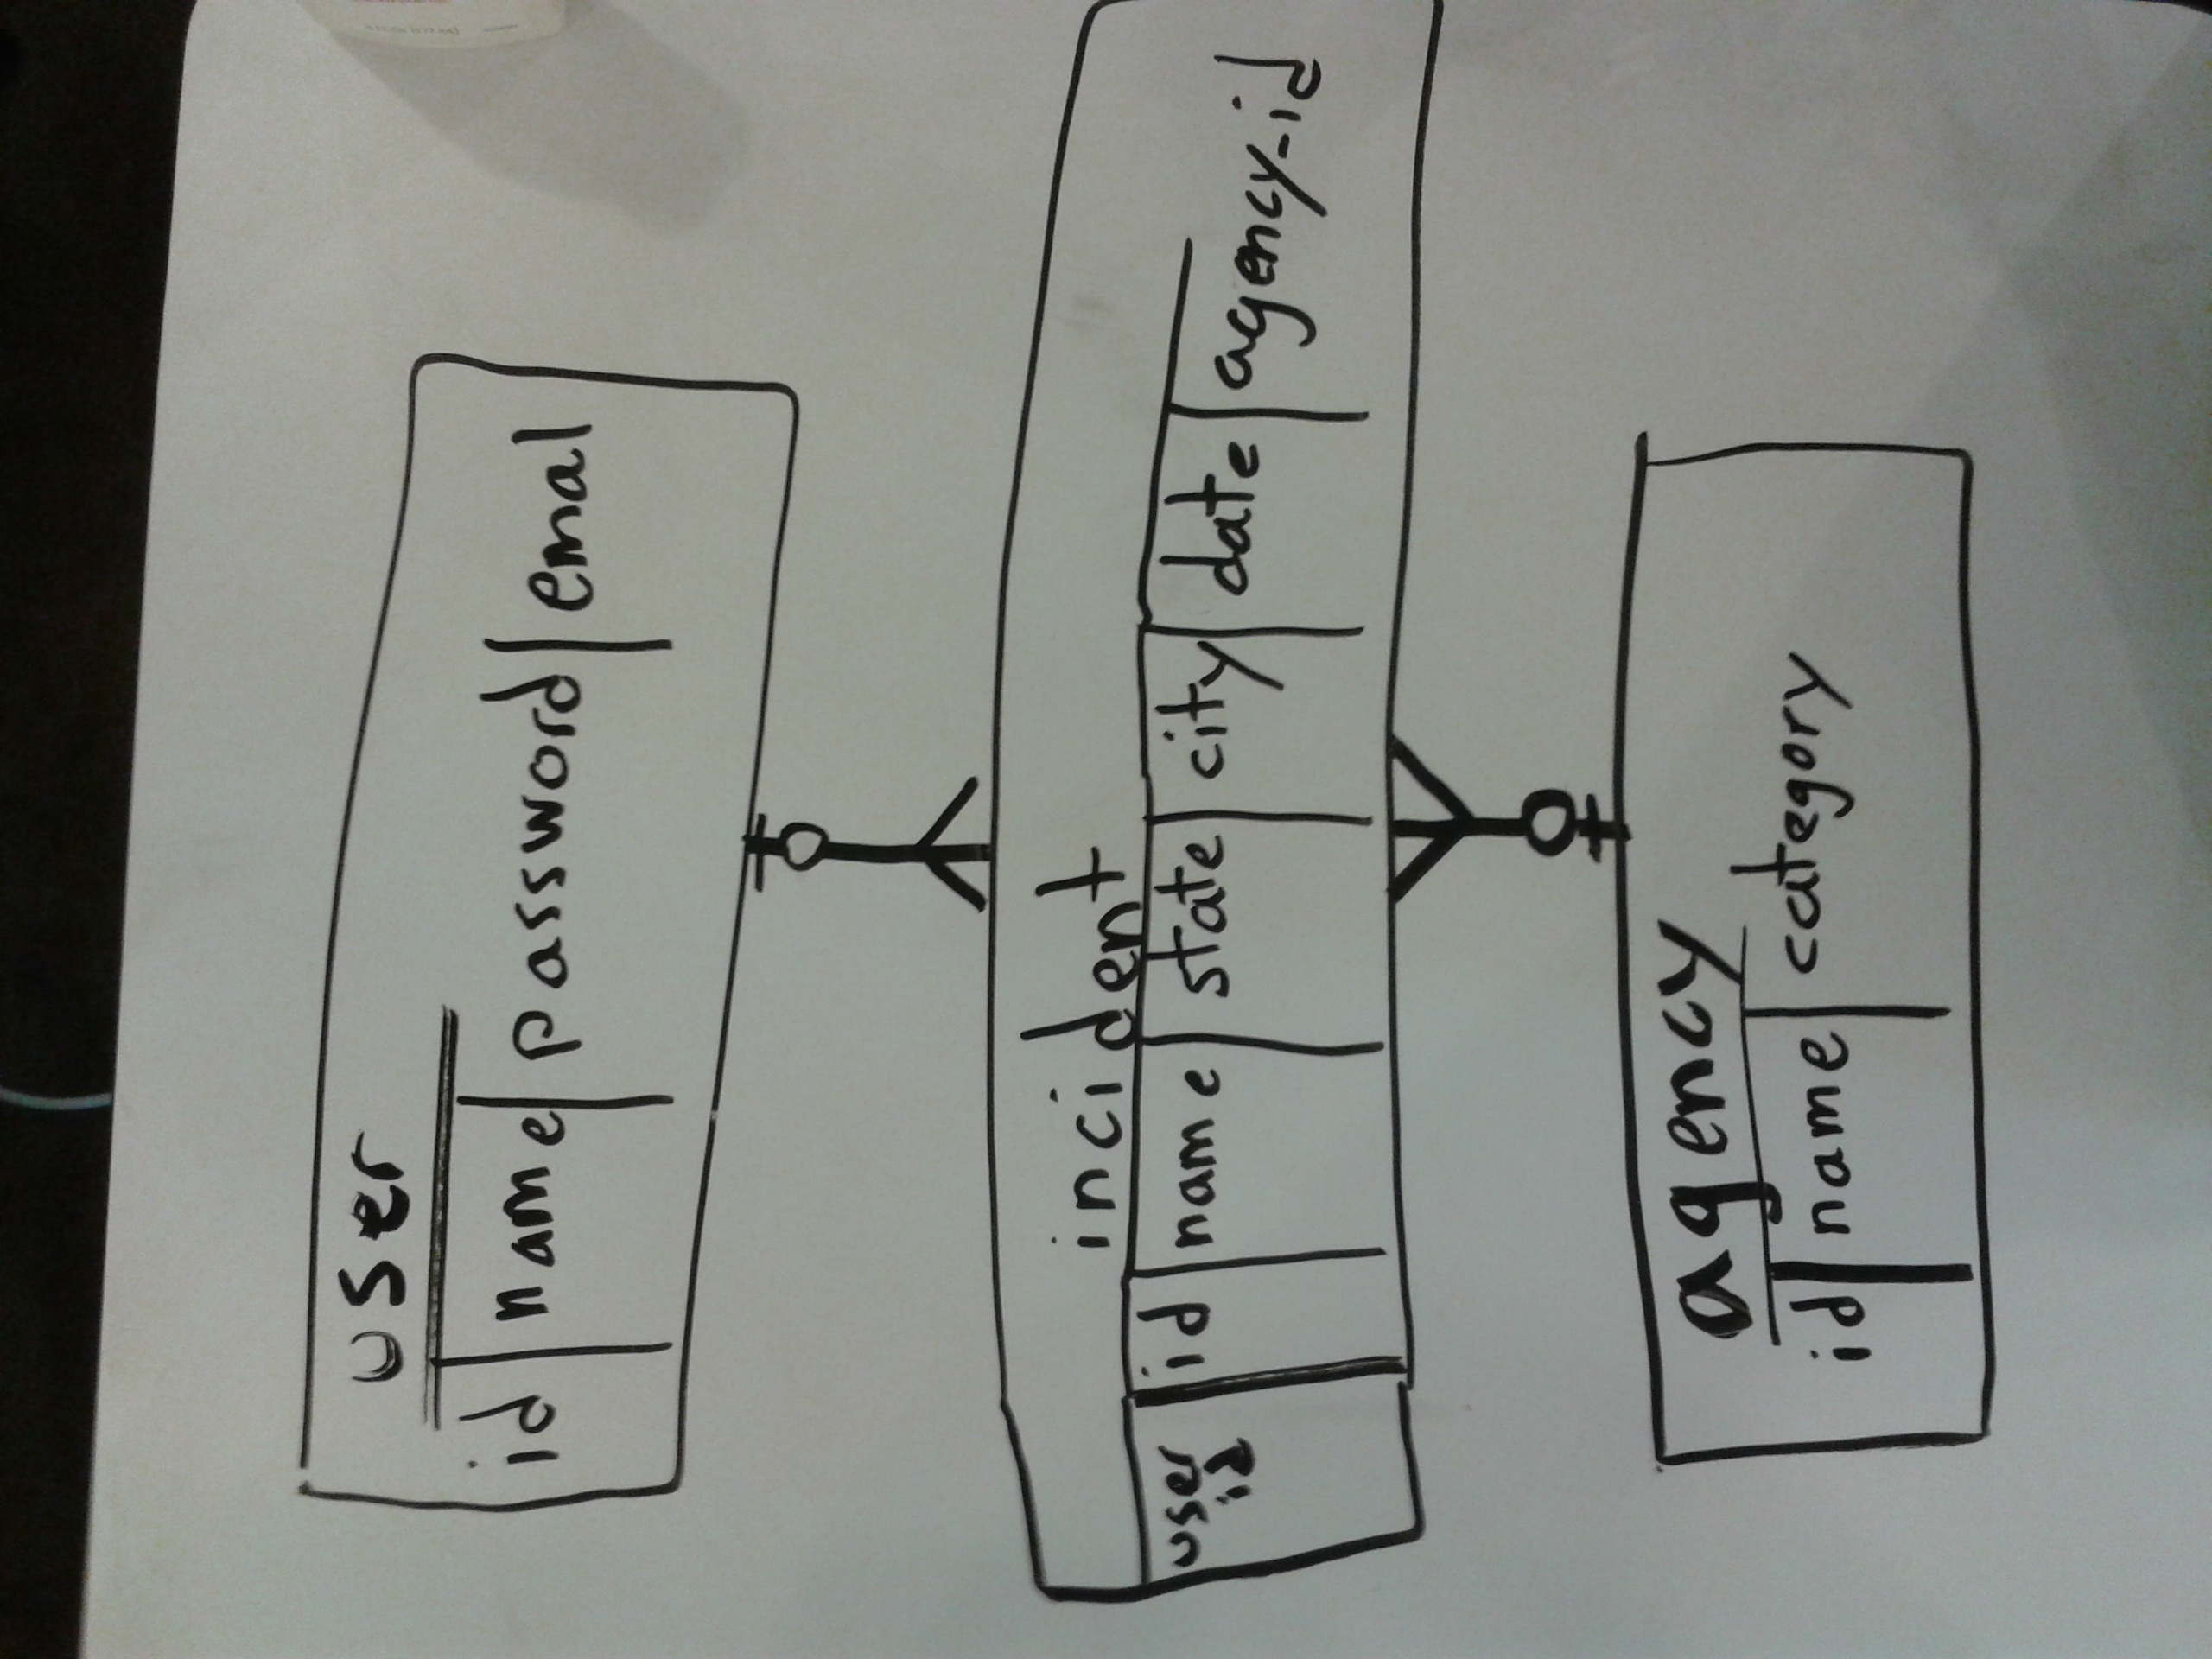 user
id name password emal
incident
user id name state city date agency-id
id
agency
id name category